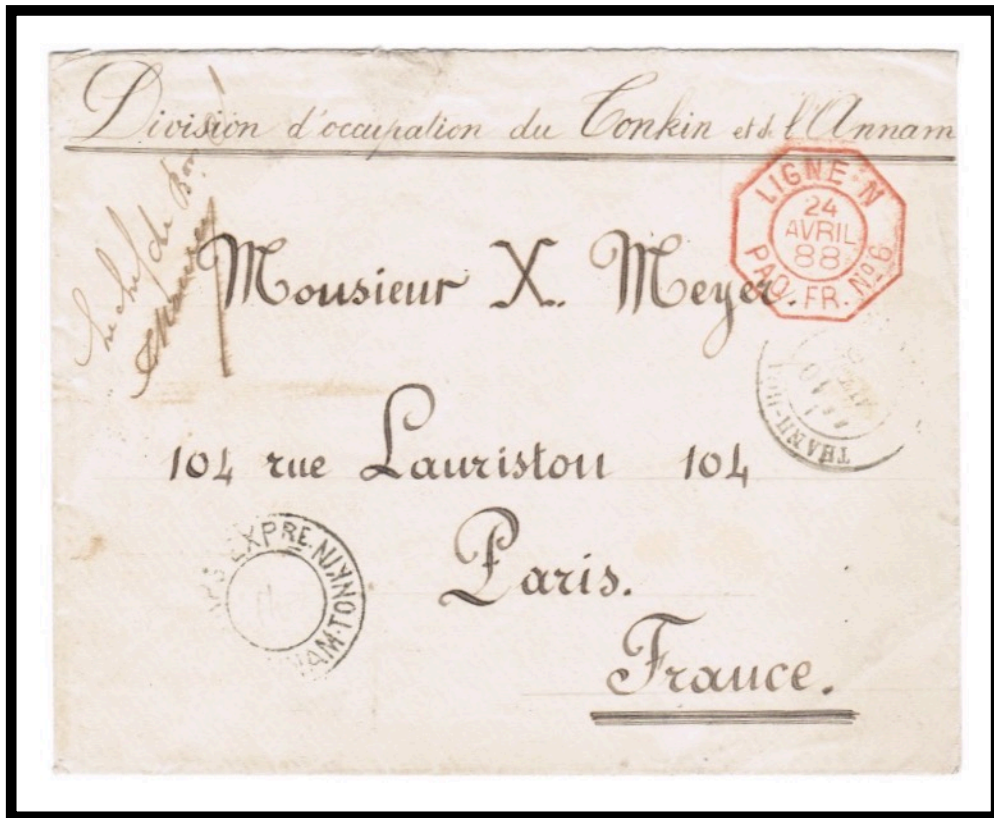 Division d'occupation du Tonkin et d. l'Annam
Le chef de Bon
LIGNE N
24
AVRIL
88
PAQ. FR. No 6
Monsieur X. Meyer.
THANH-HOA
104 rue Lauriston 104
EXPRE
TONKIN
Paris.
France.